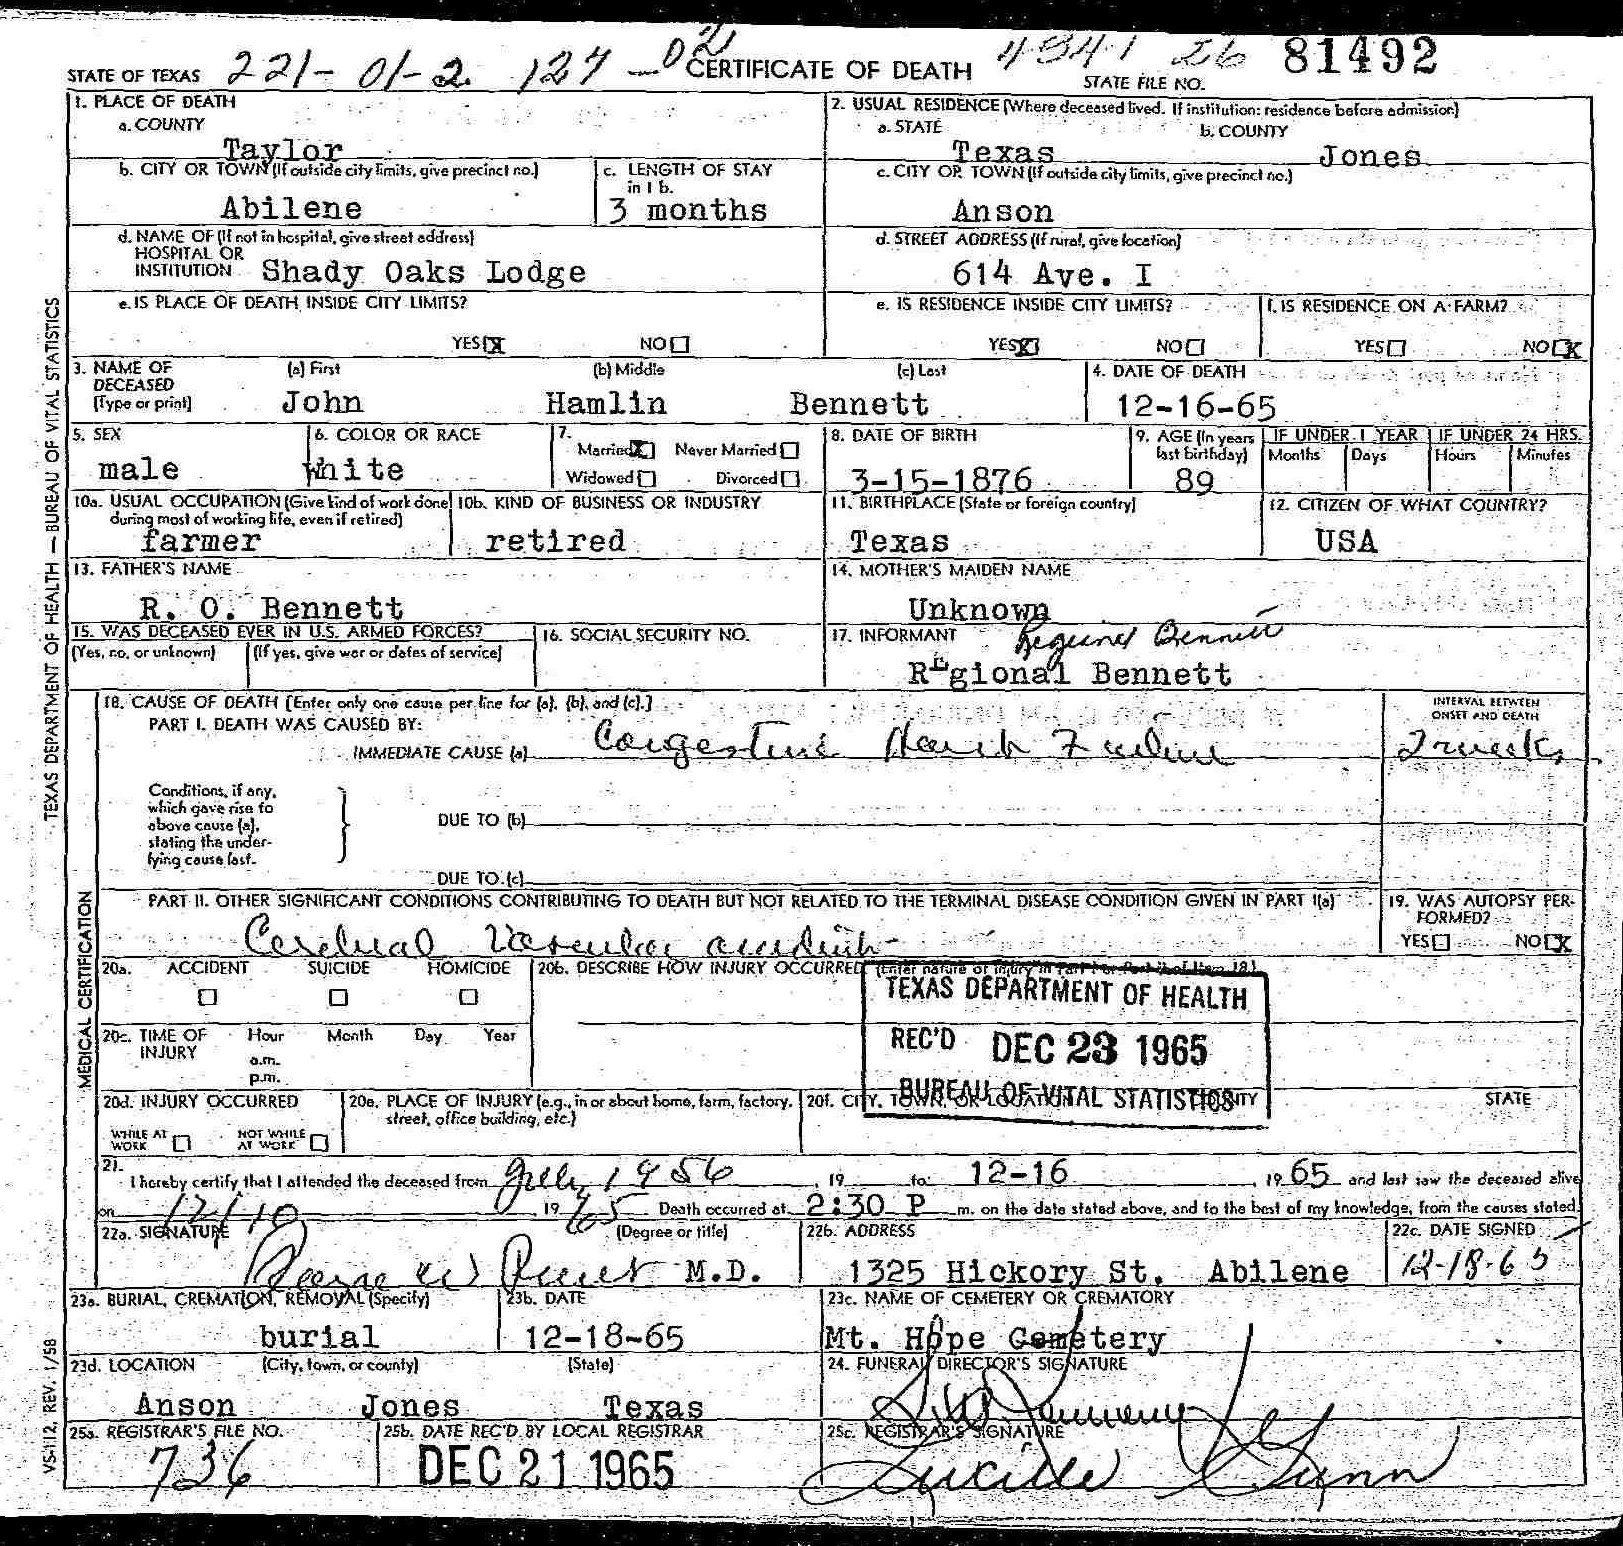 STATE OF TEXAS 221-01-2 127-02 CERTIFICATE OF DEATH 4341 26 STATE FILE NO. 81492
1. PLACE OF DEATH
a. COUNTY
Taylor
2. USUAL RESIDENCE (Where deceased lived. If institution: residence before admission)
a. STATE b. COUNTY
Texas Jones
b. CITY OR TOWN (If outside city limits, give precinct no.)
Abilene
c. LENGTH OF STAY in 1 b.
3 months
c. CITY OR TOWN (If outside city limits, give precinct no.)
Anson
d. NAME OF (If not in hospital, give street address)
HOSPITAL OR
INSTITUTION Shady Oaks Lodge
d. STREET ADDRESS (If rural, give location)
614 Ave. I
e. IS PLACE OF DEATH INSIDE CITY LIMITS?
YES X NO
e. IS RESIDENCE INSIDE CITY LIMITS?
YES X NO
f. IS RESIDENCE ON A FARM?
YES NO X
3. NAME OF DECEASED (Type or print)
(a) First (b) Middle (c) Last
John Hamlin Bennett
4. DATE OF DEATH
12-16-65
5. SEX
male
6. COLOR OR RACE
White
7.
Married X Never Married
Widowed Divorced
8. DATE OF BIRTH
3-15-1876
9. AGE (In years last birthday)
89
IF UNDER 1 YEAR
Months Days
IF UNDER 24 HRS.
Hours Minutes
10a. USUAL OCCUPATION (Give kind of work done during most of working life, even if retired)
farmer
10b. KIND OF BUSINESS OR INDUSTRY
retired
11. BIRTHPLACE (State or foreign country)
Texas
12. CITIZEN OF WHAT COUNTRY?
USA
13. FATHER'S NAME
R. O. Bennett
14. MOTHER'S MAIDEN NAME
Unknown
15. WAS DECEASED EVER IN U.S. ARMED FORCES?
(Yes, no, or unknown) (If yes, give war or dates of service)
16. SOCIAL SECURITY NO.
17. INFORMANT Bennett
Regional Bennett
18. CAUSE OF DEATH [Enter only one cause per line for (a), (b), and (c).]
PART I. DEATH WAS CAUSED BY:
IMMEDIATE CAUSE (a) Congestive Heart Failure
INTERVAL BETWEEN ONSET AND DEATH
2 weeks
Conditions, if any, which gave rise to above cause (a), stating the underlying cause last.
DUE TO (b)
DUE TO (c)
PART II. OTHER SIGNIFICANT CONDITIONS CONTRIBUTING TO DEATH BUT NOT RELATED TO THE TERMINAL DISEASE CONDITION GIVEN IN PART I(a)
Cerebral Vascular accident
19. WAS AUTOPSY PERFORMED?
YES NO X
20a. ACCIDENT SUICIDE HOMICIDE
20b. DESCRIBE HOW INJURY OCCURRED (Enter nature of injury in Part I or Part II of Item 18.)
TEXAS DEPARTMENT OF HEALTH
REC'D DEC 23 1965
BUREAU OF VITAL STATISTICS
20c. TIME OF INJURY
Hour Month Day Year
a.m.
p.m.
20d. INJURY OCCURRED
WHILE AT WORK NOT WHILE AT WORK
20e. PLACE OF INJURY (e.g., in or about home, farm, factory, street, office building, etc.)
20f. CITY, TOWN, OR LOCATION COUNTY STATE
21.
I hereby certify that I attended the deceased from July, 1956, 19 to 12-16, 1965 and last saw the deceased alive
on 12/10, 1965 Death occurred at 2:30 P m. on the date stated above, and to the best of my knowledge, from the causes stated.
22a. SIGNATURE (Degree or title)
M.D.
22b. ADDRESS
1325 Hickory St. Abilene
22c. DATE SIGNED
12-18-65
23a. BURIAL, CREMATION, REMOVAL (Specify)
burial
23b. DATE
12-18-65
23c. NAME OF CEMETERY OR CREMATORY
Mt. Hope Cemetery
23d. LOCATION (City, town, or county) (State)
Anson Jones Texas
24. FUNERAL DIRECTOR'S SIGNATURE
25a. REGISTRAR'S FILE NO.
736
25b. DATE REC'D BY LOCAL REGISTRAR
DEC 21 1965
25c. REGISTRAR'S SIGNATURE
Lucille Gunn
TEXAS DEPARTMENT OF HEALTH — BUREAU OF VITAL STATISTICS
MEDICAL CERTIFICATION
VS-112, REV. 1/58